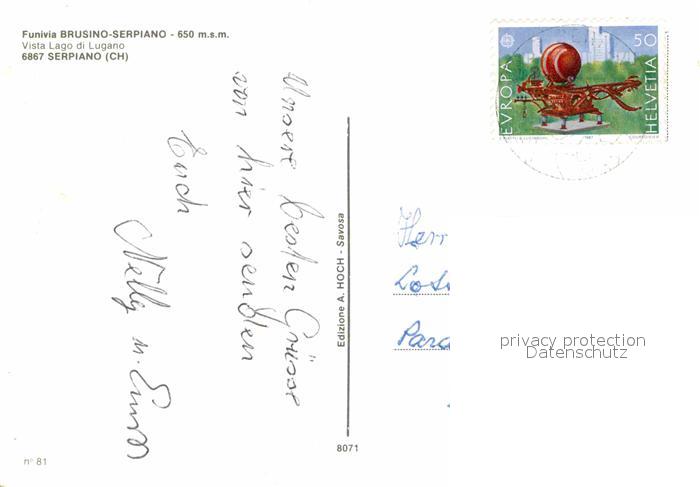 Funivia BRUSINO-SERPIANO - 650 m.s.m.
Vista Lago di Lugano
6867 SERPIANO (CH)
Unsere besten Grüsse
von hier senden
Euch
Nelly u.
n° 81
Edizione A. HOCH - Savosa
8071
EVROPA
50
HELVETIA
1987
COURVOISIER
Herr
privacy protection
Datenschutz